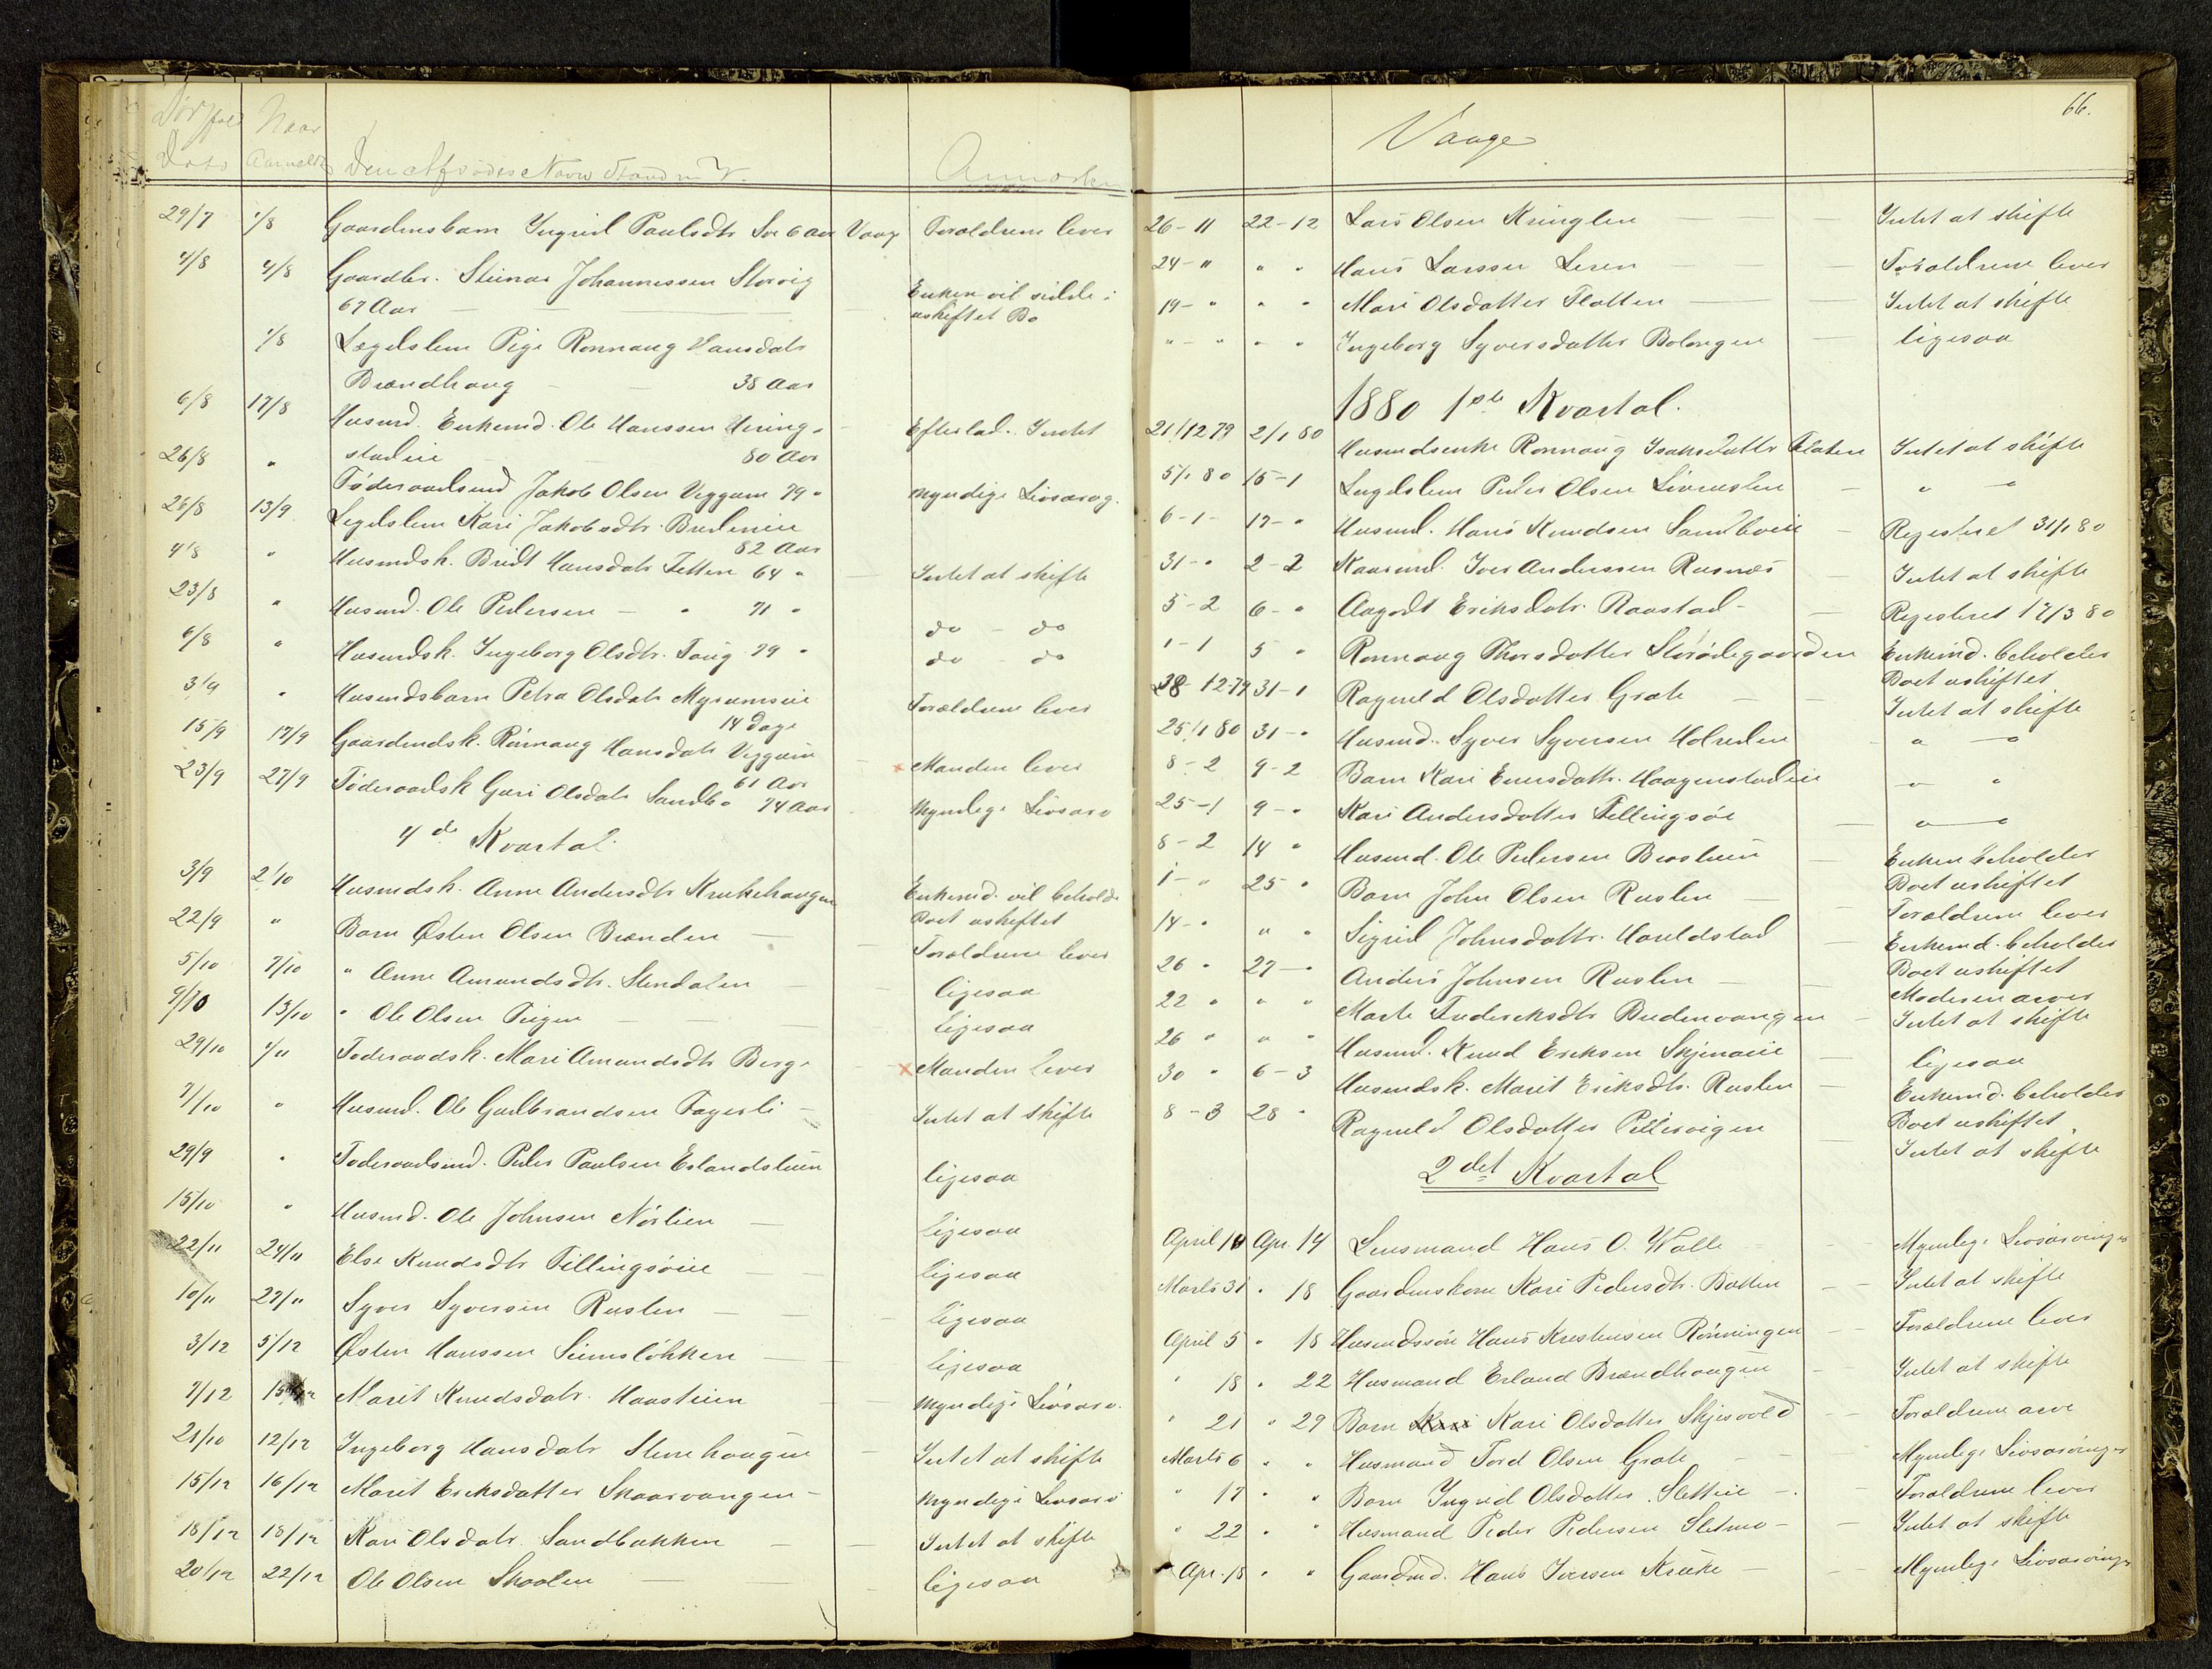 Naar
Dato Anmeldt Den Afdødes Navn Stand m V. Anmærkn
29/7 1/8 Gaardmsbarn Ingrid Paulsdtr Sve 6 Aar Vaage Forældrene lever
4/8 4/8 Gaardbr. Steinar Johannessen Storvig
67 Aar Enken vil sidde i
uskiftet Bo
1/8 Lægdslem Pige Rønnaug Hansdatr
Brændhaug 38 Aar
6/8 17/8 Husmd. Enkemd. Ole Hanssen Hæring-
stadeie 80 Aar Efterlad. Intet
26/8 " Føderaadsmd Jakob Olsen Veggum 79 " Myndige Livsarvg.
26/8 13/9 Legdslem Kari Jakobsdtr.
82 Aar
4/8 " Husmdsk. Bridt Hansdatr Tetten 64 " Intet at skifte
23/8 " Husmd. Ole Pedersen — " 71 " do - do
6/8 " Husmdsk. Ingeborg Olsdtr. 79 " do - do
3/9 " Husmdsbarn Petra Olsdatr Myrumseie
14 Dage Forældrene lever
15/9 17/9 Gaardmdsk. Rønnaug Hansdatr Veggum
61 Aar Manden lever
23/9 27/9 Føderaadsk Guri Olsdatr Sandbo 74 Aar Myndige Livsarv
4de Kvartal.
3/9 2/10 Husmdsk. Anne Andersdtr Krukehaugen Enkemd. vil beholde
Boet uskiftet
22/9 " Barn Østen Olsen Brænden Forældrene lever
5/10 7/10 " Anne Amundsdtr. Stendalen ligesaa
9/10 13/10 " Ole Olsen ligesaa
29/10 1/11 Føderaadsk. Mari Amundsdtr Berge Manden lever
7/10 " Husmd. Ole Gudbrandsen Fagerli Intet at skifte
29/9 " Føderaadsmd. Peder Paulsen Erlandsluen ligesaa
15/10 " Husmd. Ole Johnsen Nørlien ligesaa
22/11 24/11 Else Knudsdtr Tillingsøeie ligesaa
10/11 27/11 Syver Syversen Ruslen ligesaa
3/12 5/12 Østen Hanssen ligesaa
7/12 Marit Knudsdatr. Haastuen Myndige Livsarv.
21/10 12/12 Ingeborg Hansdatr Stenehaugen Intet at skifte
15/12 16/12 Marit Eriksdatter Skaarvangen Myndige Livsarv
18/12 18/12 Kari Olsdatr Sandbakken Intet at skifte
20/12 22/12 Ole Olsen ligesaa
66.
Vaage
26-11 22-12 Lars Olsen Kringlen Intet at skifte
24-" " " Hans Larssen Forældrene lever
19-" " " Mari Olsdatter Flatten Intet at skifte
"-" " " Ingeborg Syversdatter Bolongen ligesaa
1880 1ste Kvartal.
21/12 79 2/1 80 Husmdsenke Rønnaug Isaksdatter Flaten Intet at skifte
5/1 80 15-1 Lægdslem Peder Olsen " "
6-1- 17-" Husmd. Hans Knudsen Sandboeie Registeret 31/1 80
31-" 2-2 Kaarmd. Iver Anderssen Rusnæs Intet at skifte
5-2 6-" Aagodt Eriksdatr. Raastad Registeret 17/3 80
1-1 5 " Rønnaug Thorsdatter Storødegaarden Enkemd. beholder
Boet uskiftet
28-12 79 31-1 Ragnild Olsdatter Grate Intet at skifte
25/1 80 31-" Husmd. Syver Syversen Holreden " "
8-2 9-2 Barn Kari Enersdatr. Haagenstadeie " "
25-1 9-" Kari Andersdatter Tillingsøe " "
8-2 14 " Husmd. Ole Pedersen Enken beholder
Boet uskiftet
1-" 25 " Barn John Olsen Ruslen Forældrene lever
14-" " " Sigrid Johnsdatter. Hareldstad Enkemd. beholder
Boet uskiftet
26 " 27-" Anders Johnsen Ruslen Moderen arver
22 " " " Marte Frederiksdtr Budenvangen Intet at skifte
26 " " " Husmd. Knud Eriksen ligesaa
30 " 6-3 Husmdsk. Marit Eriksdtr. Ruslen Enkemd. beholder
Boet uskiftet
8-3 28 " Ragnild Olsdatter Intet at skifte
2det Kvartal
April 10 Apr. 14 Lensmand Hans O. Walle Myndige Livsarvinger
Marts 31 " 18 Gaardmskone Kari Pedersdtr. Botten Intet at skifte
April 5 " 18 Husmdssøn Hans Kristensen Rønningen Forældrene lever
" 18 " 22 Husmand Erland Brændhaugen Intet at skifte
" 21 " 29 Barn Kari Olsdatter Skjesvold Forældrene arve
Marts 6 " " Husmand Tord Olsen Grate Myndige Livsarvinger
" 17 " " Barn Ingrid Olsdatter Sletteie Forældrene lever
" 22 " " Husmand Peder Pedersen Sletmo Intet at skifte
Apr. 18 " " Gaardmd. Hans Iversen Kruke Myndige Livsarvinger